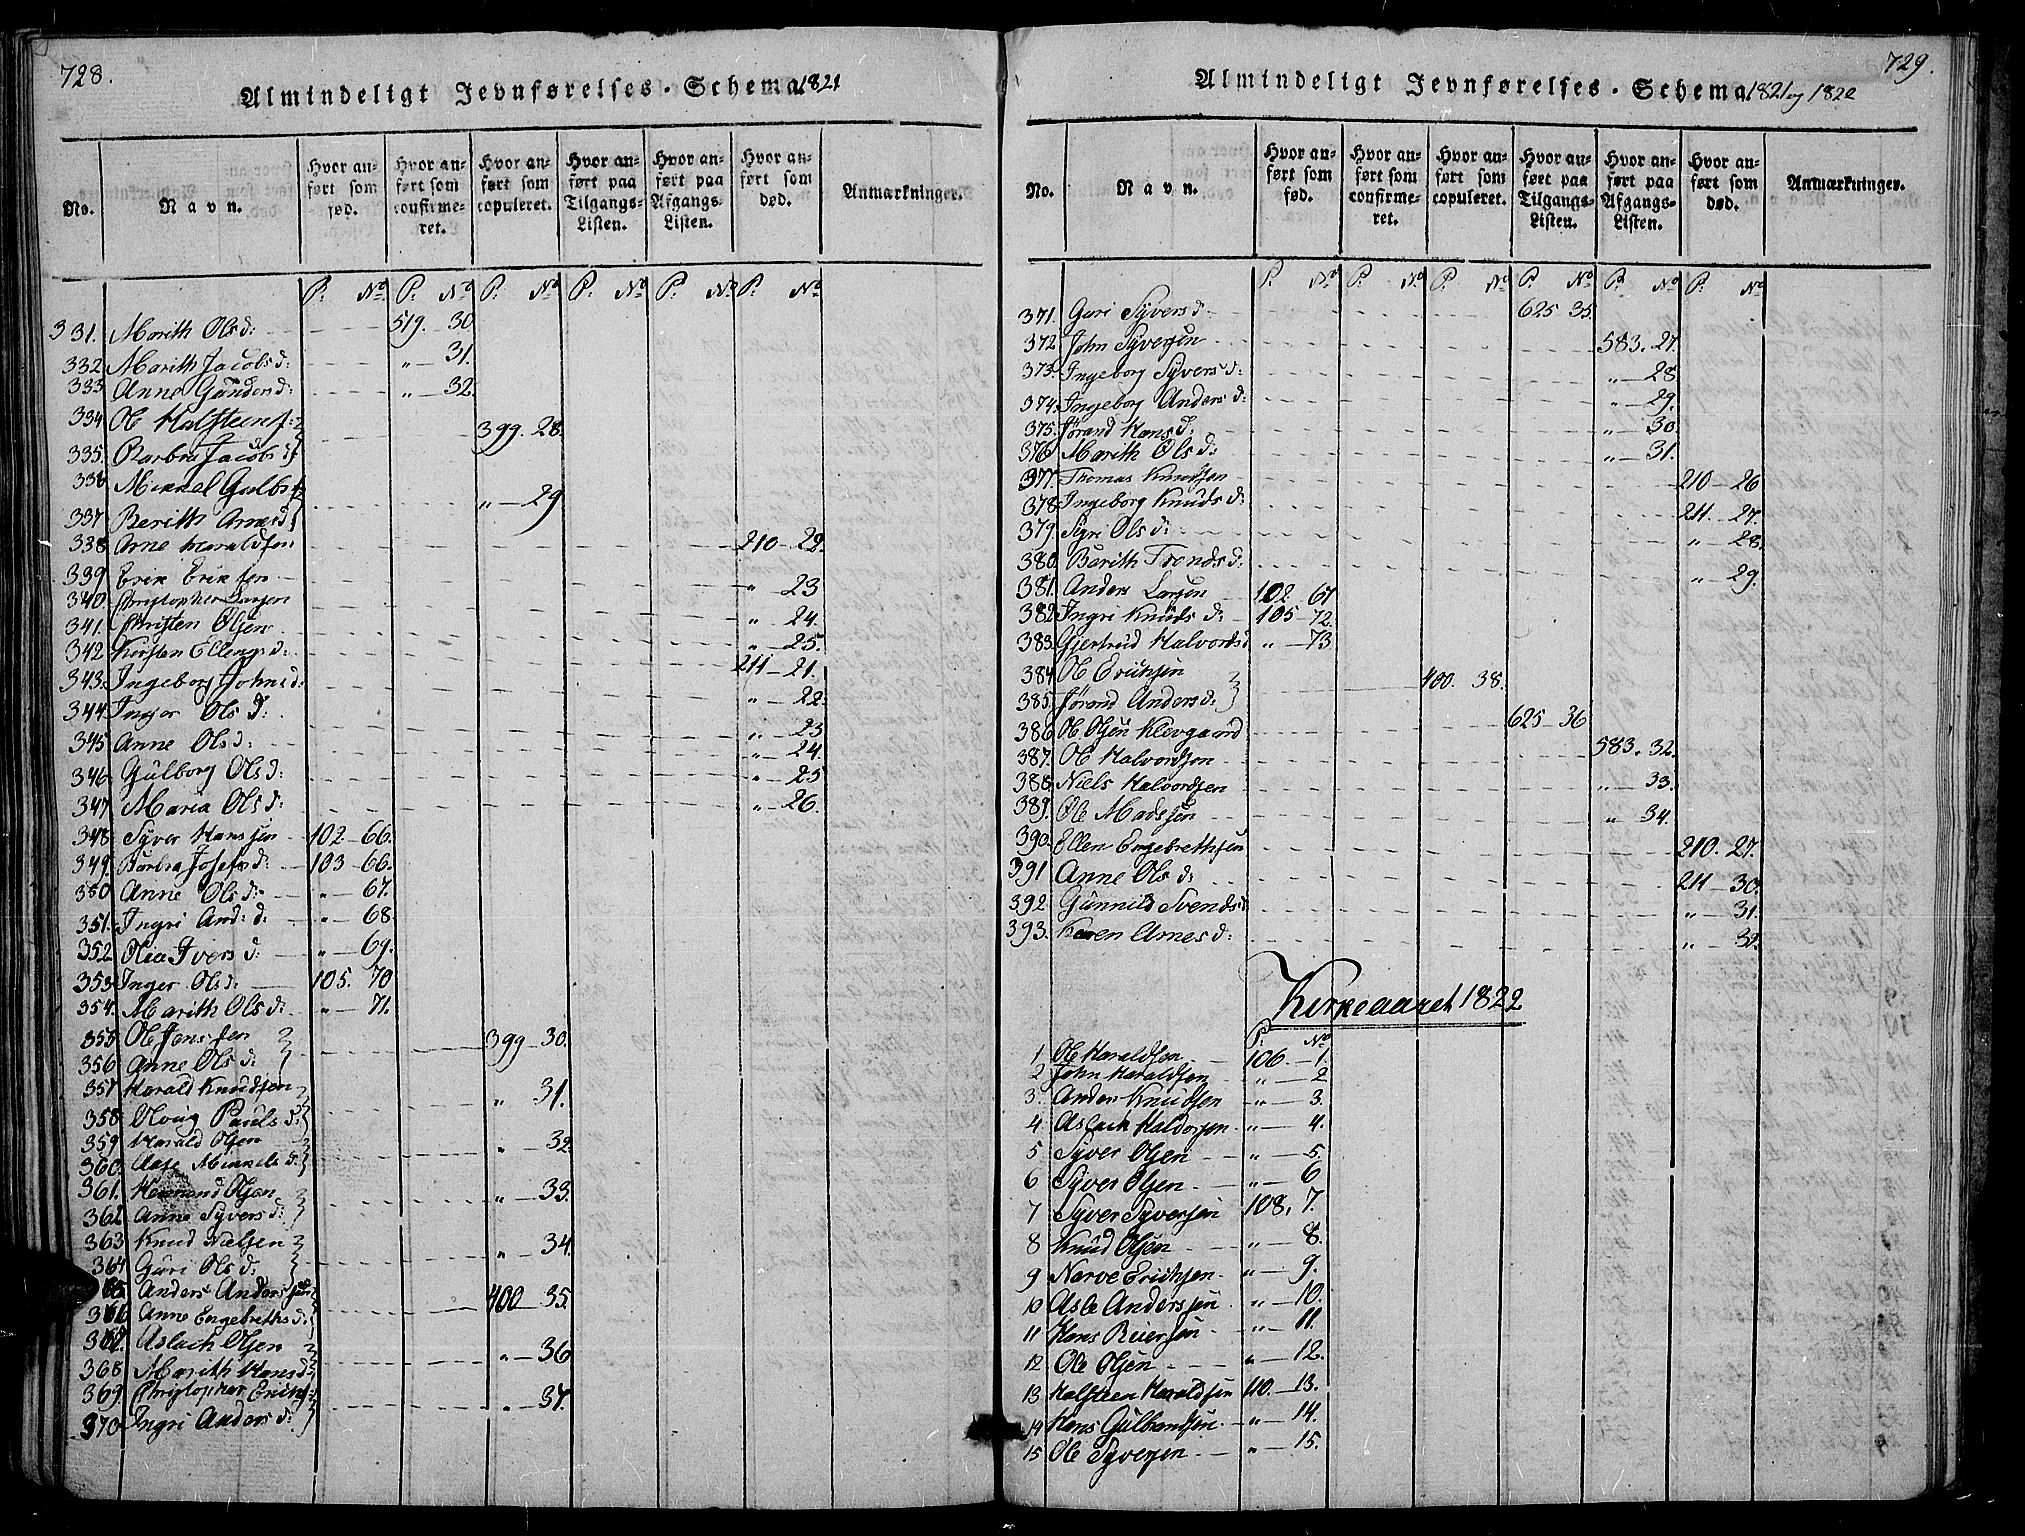 728.
Almindeligt Jevnførelses-Schema 1821
No. Navn. Hvor anført som fød. Hvor anført som confirmeret. Hvor anført som copuleret. Hvor anført paa Tilgangs-Listen. Hvor anført paa Afgangs-Listen. Hvor anført som død. Anmærkninger.
P. No P. No P. No P. No P. No P. No
331. Marith Ols d: 519. 30
332 Marith Jacobs d: " 31.
333 Anne Gunders d: " 32
334 Ol Halsteens:
335. Barbra Jacobs d: 399. 28.
336 Mikkel Gulbs:
337 Berith Arnes d: " 29
338 Arne Haraldsen 210 22.
339 Erik Eriksen " 23
340 Christopher Larsen " 24.
341. Christen Olsen " 25.
342 Kirsten Ellengs d: 211 21.
343. Ingeborg Johns d: " 22.
344 Inger Ols d: " 23
345 Anne Ols d: " 24
346 Gulborg Ols d: " 25
347 Maria Ols d: " 26.
348 Syver Hanssen 102 66.
349. Barbra Josefs d: 103 66.
350 Anne Ols d: " 67.
351. Ingri And: d: " 68
352 Olea Ivers d: " 69.
353 Inger Ols d: 105. 70
354. Marith Ols d: " 71.
355 Ol Jenssen
356 Anne Ols d: 399 30.
357 Harald Knudsen
358 Novig Pauls d: " 31.
359 Harald Olsen
360. Aase Mikkels d: " 32
361. Hermand Olsen
362 Anne Syvers d: " 33.
363 Knud Nielsen
364 Guri Ols d: " 34.
65 Anders Anderssen
366 Anne Engebreths d: 400 35.
367. Aslach Olsen
368 Marith Hans d: " 36
369 Christopher Erichs:
370 Ingri Anders d: " 37.
729.
Almindeligt Jevnførelses-Schema 1821 og 1822
No. Navn. Hvor anført som fød. Hvor anført som confirmeret. Hvor anført som copuleret. Hvor anført paa Tilgangs-Listen. Hvor anført paa Afgangs-Listen. Hvor anført som død. Anmærkninger.
P. No P. No P. No P. No P. No P. No
371. Guri Syvers d 625 35.
372 John Syversen 583. 27.
373. Ingeborg Syvers d: " 28
374. Ingeborg Anders d: " 29.
375. Jørand Hans d. " 30.
376 Marith Ols d: " 31.
377. Thomas Knudsen 210 26
378 Ingeborg Knuds d: 211. 27.
379. Syri Ols d: " 28.
380. Barith Tronds d: " 29.
381. Anders Larsen 102 67
382. Ingri Knuds d: 105 72.
383. Gjertrud Halvords d " 73
384 Ol Erichsen
385. Jørand Anders d: 400. 38.
386 Ol Olsen Klevgaard 625 36
387. Ol Halvordsen 583. 32.
388. Niels Halvordsen " 33.
389. Ole Madssen " 34.
390. Ellen Engebrethsen 210. 27.
391 Anne Ols d: 211 30.
392. Gunnild Svends d " 31.
393. Karen Arnes d: " 32.
Kirkeaaret 1822
P. No
1 Ol Haraldsen 106. 1.
2 John Haraldsen " 2
3. Anders Knudsen " 3.
4. Aslach Haldorsen " 4.
5 Syver Olsen " 5.
6 Syver Olsen " 6
7 Syver Syversen 108. 7.
8 Knud Olsen " 8.
9 Narve Erichsen " 9.
10 Asle Anderssen " 10.
11 Hans Reiersen " 11.
12. Ole Olsen " 12.
13 Halsteen Haraldsen 110. 13.
14 Hans Gulbrandsen " 14.
15 Ole Syversen " 15.